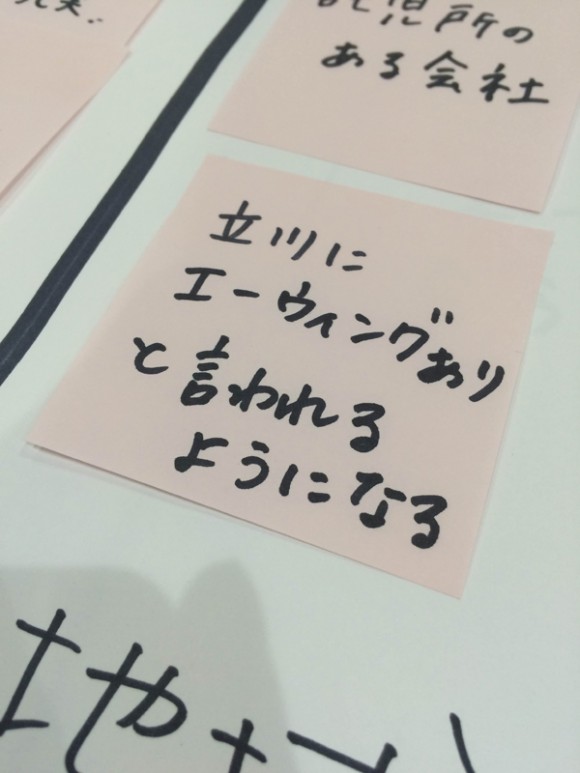 児所の
ある会社
立川に
エーウィングあり
と言われる
ようになる
地